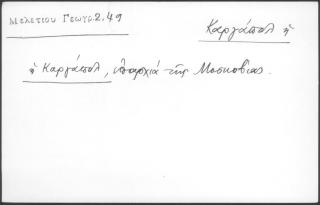 Μελετίου Γεωγρ. 2.49
Καργάπολ ἡ
ἡ Καργάπολ, ἐπαρχία τῆς Μοσκοβίας.